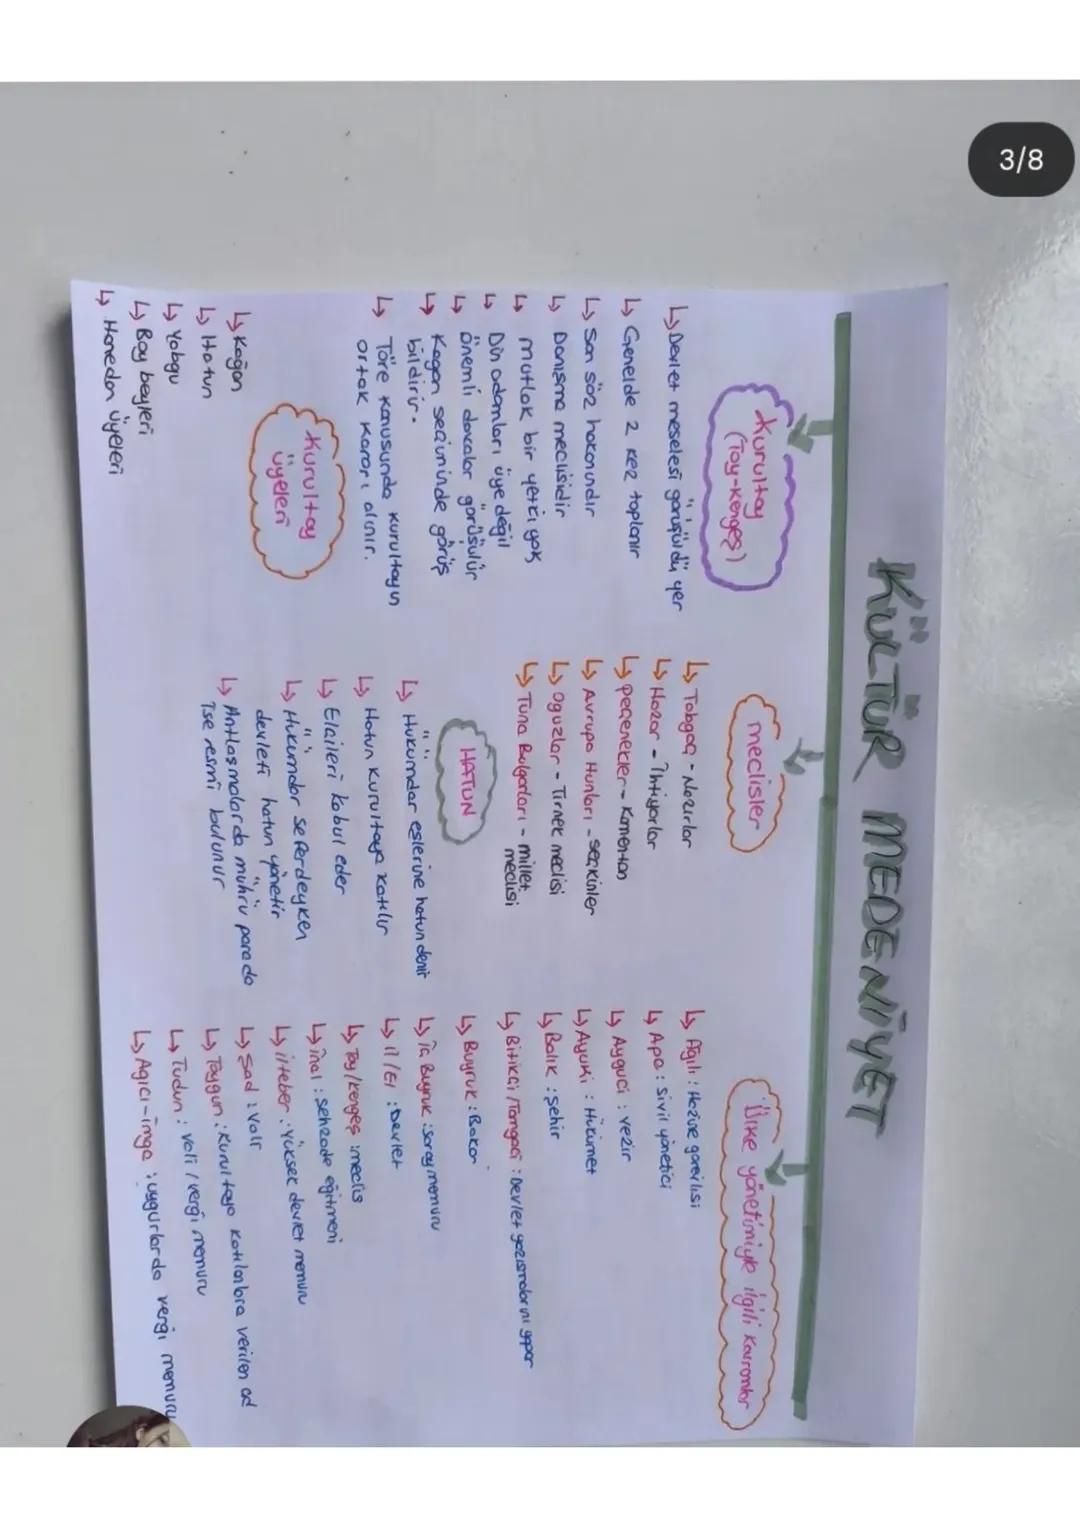 3/8
KÜLTÜR MEDENİYET
Kurultay
(Toy-Kengeş)
↳ Devlet meselesi görüşüldü yer
↳ Genelde 2 kez toplanır
↳ Son söz hakanındır
↳ Danışma meclisidir
↳ mutlak bir yetki yok
↳ Din adamları üye değil
↳ Önemli davalar görüşülür
↳ Kagan seçiminde görüş
bildirir.
↳ Töre konusunda kurultayın
ortak kararı alınır.
Kurultay
üyeleri
↳ Kağan
↳ Hatun
↳ Yabgu
↳ Boy beyleri
↳ Hanedan üyeleri
meclisler
↳ Tabgaç - Nazırlar
↳ Hazar - İhtiyarlar
↳ peçenekler - Komenton
↳ Avrupa Hunları - seçkinler
↳ Oguzlar - Tirnek meclisi
↳ Tuna Bulgarları - millet
meclisi
HATUN
↳ Hükümdar eşlerine hatun denir
↳ Hatun Kurultaya katılır
↳ Elçileri kabul eder
↳ Hükümdar seferdeyken
devleti hatun yönetir
↳ Antlaşmalarda mührü parada
ise resmi bulunur
Ülke yönetimiyle ilgili kavramlar
↳ Agılı : Hazine görevlisi
↳ Apa : sivil yönetici
↳ Ayguci : vezir
↳ Ayuki : Hükümet
↳ Balık : şehir
↳ Bitikçi / Tamgacı : Devlet yazışmalarını yapar
↳ Buyruk : Bakan
↳ İç Buyruk : saray memuru
↳ İl / El : Devlet
↳ Toy / kengeş : meclis
↳ İnal : şehzade eğitmeni
↳ ilteber : Yüksek devlet memuru
↳ Şad : Vali
↳ Toygun : Kurultaya katılanlara verilen ad
↳ Tudun : vali / vergi memuru
↳ Agıcı - ımga : uygurlarda vergi memuru